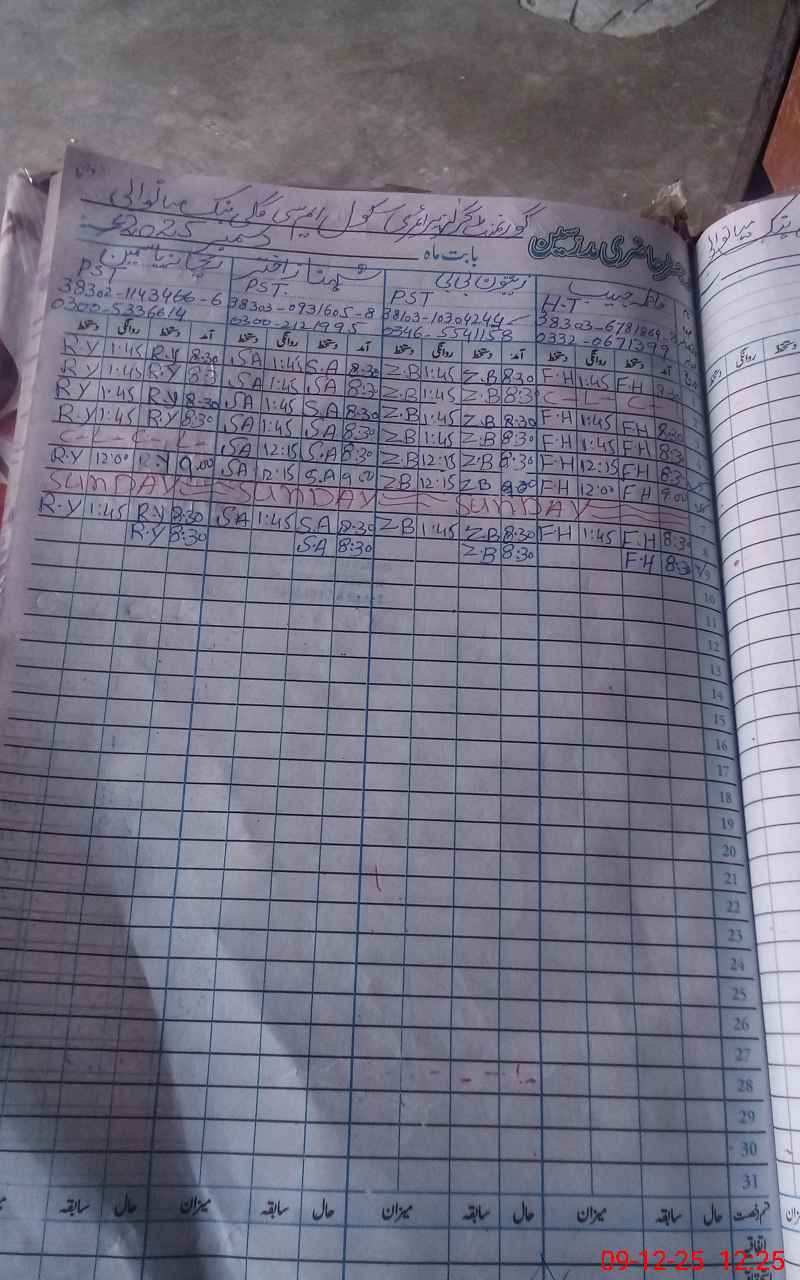 رجسٹر حاضری مدرسین گورنمنٹ گرلز پرائمری سکول ایم سی گلی میانوالی
بابت ماہ دسمبر 2025ء
زیتون بی بی
H.T PST PST. PST
38303-6781864 38103-10304244 38303-0931605-8 38302-1143466-6
0332-0671399 0346-5541158 0300-2121995 0300-5336614
آمد دستخط روانگی دستخط آمد دستخط روانگی دستخط آمد دستخط روانگی دستخط آمد دستخط روانگی دستخط
R.Y 1:45 R.Y 8:30 S.A 1:45 S.A 8:30 Z.B 1:45 Z.B 8:30 F.H 1:45 F.H 8:30
R.Y 1:45 R.Y 8:3 S.A 1:45 S.A 8:3 Z.B 1:45 Z.B 8:30 C-L- C-L
R.Y 1:45 R.Y 8:30 S.A 1:45 S.A 8:30 Z.B 1:45 Z.B 8:30 F.H 1:45 F.H 8:30
R.Y 1:45 R.Y 8:30 S.A 1:45 S.A 8:30 Z.B 1:45 Z.B 8:30 F.H 1:45 F.H 8:3
C-L- C-L- S.A 12:15 S.A 8:30 Z.B 12:15 Z.B 8:30 F.H 12:15 F.H 8:3
R.Y 12:00 R.Y 9.00 S.A 12:15 S.A 9:00 Z.B 12:15 Z.B 9:00 F.H 12:00 F.H 9:00
SUNDAY SUNDAY SUNDAY 7
R.Y 1:45 R.Y 8:30 S.A 1:45 S.A 8:30 Z.B 1:45 Z.B 8:30 F.H 1:45 F.H 8:30 8
R.Y 8:30 S.A 8:30 Z.B 8:30 F.H 8:30 9
10
11
12
13
14
15
16
17
18
19
20
21
22
23
24
25
26
27
28
29
30
31
قسم رخصت حال سابقہ میزان حال سابقہ میزان حال سابقہ میزان حال سابقہ
اتفاقیہ
09-12-25 12:25